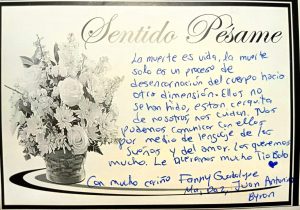 Sentido Pésame
La muerte es vida, la muerte
solo es un proceso de
desencarnación del cuerpo hacia
otra dimensión. Ellos no
se han ido, estan cerquita
de nosotros, nos cuidan. Nos
podemos comunicar con ellos
por medio de lenguaje de los
sueños y del amor. Los queremos
mucho. Le queremos mucho Tío Bobo
Con mucho cariño Fanny Guadalupe
Ma. Paz, Juan Antonio
Byron